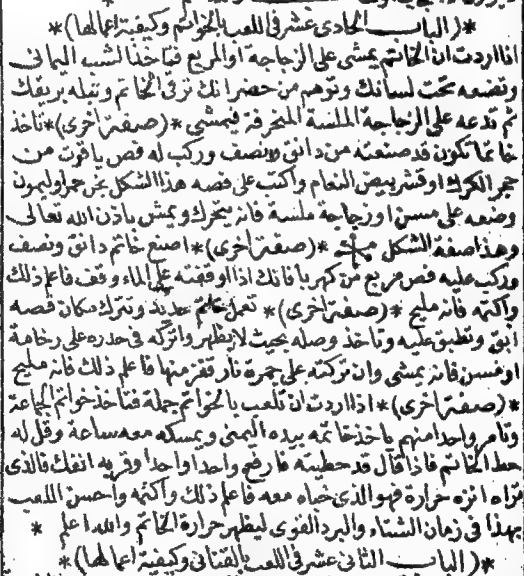 *(الباب الحادى عشر فى اللعب بالخواتم وكيفية اعمالها)*
اذا اردت ان الخاتم يمشى على الزجاجة او المربع فتاخذ الشب اليمانى
وتضعه تحت لسانك وتوهم من حضر انك ترقى الخاتم وتبله بريقك
ثم تدعه على الزجاجة الملسة المنحرفة فيمشى *(صفة اخرى)* تاخذ
خاتما تكون قد صنعته من دانق ونصف وركب له فص ياقوت من
حجر الكرك او قشر بيض النعام واكتب على فصه هذا الشكل بخر حمر اوليمون
وضعه على مسن او زجاجة ملسة فانه يتحرك ويمش باذن الله تعالى
وهذا صفة الشكل *(صفة اخرى)* اصنع خاتم دانق ونصف
وركب عليه فص مربع من كهربا فانك اذا اوقفته على الماء وقف فاعلم ذلك
واكتمه فانه مليح *(صفة اخرى)* تعمل خاتم حديد وتترك مكان فصه
ابق وتطبق عليه وتاخذ وصله بحيث لا يظهر واتركه فى حدره على رخامة
او مسن فانه يمشى وان تركته على جمرة نار قفز منها فاعلم ذلك فانه مليح
*(صفة اخرى)* اذا اردت ان تلعب بالخواتم جملة فتاخذ خواتم الجماعة
وتامر واحد منهم ياخذ خاتمه بيده اليمنى ويمسكه معه ساعة وقل له
حط الخاتم فاذا قال قد حطيته فارفع واحدا واحدا وقربه انفك فالذى
تراه انزه حرارة فهو الذى خباه معه فاعلم ذلك واكتمه واحسن اللعب
بهذا فى زمان الشتاء والبرد القوى ليظهر حرارة الخاتم والله اعلم *
*(الباب الثانى عشر فى اللعب بالقنانى وكيفية اعمالها)*